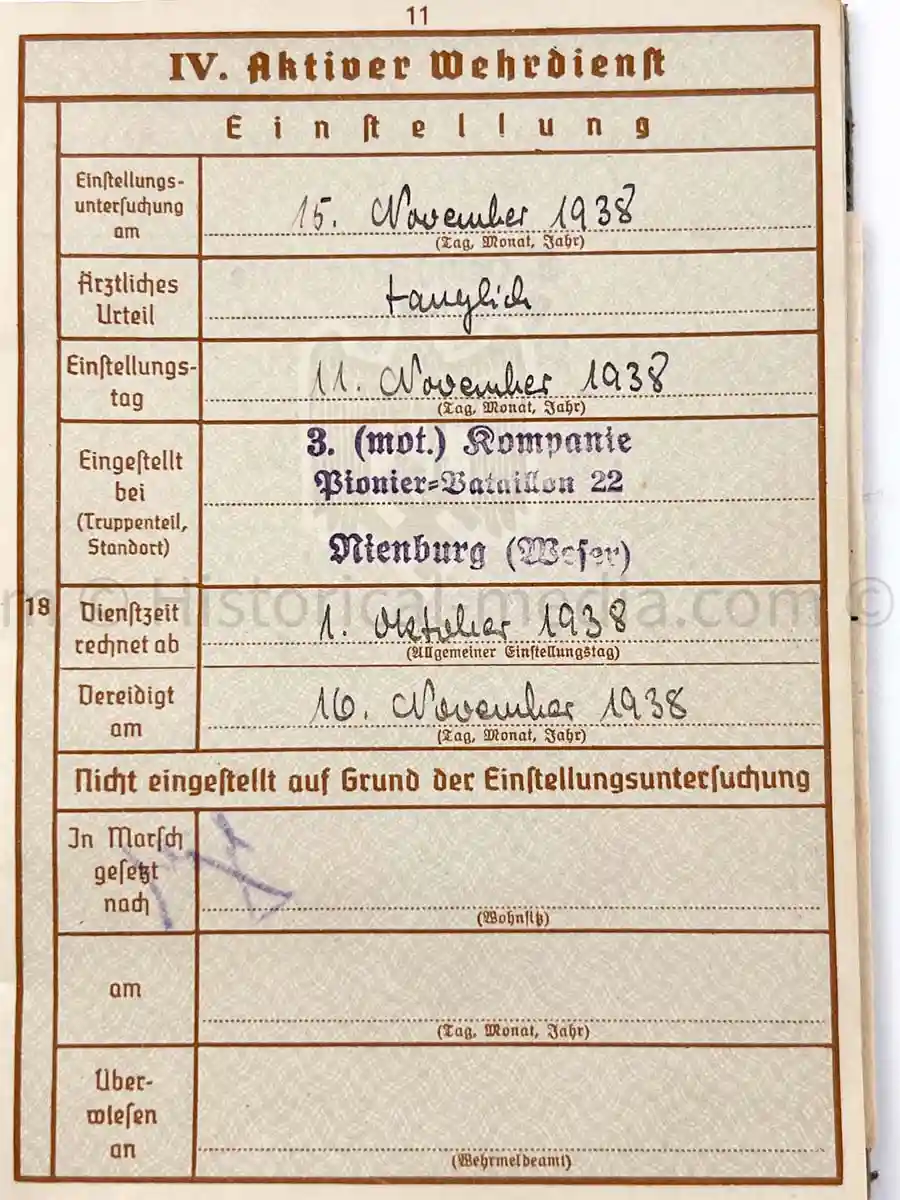 11
IV. Aktiver Wehrdienst
Einstellung
Einstellungs-
untersuchung
am
15. November 1938
(Tag, Monat, Jahr)
Ärztliches
Urteil
tauglich
Einstellungs-
tag
11. November 1938
(Tag, Monat, Jahr)
Eingestellt
bei
(Truppenteil,
Standort)
3. (mot.) Kompanie
Pionier-Bataillon 22
Nienburg (Weser)
18
Dienstzeit
rechnet ab
1. Oktober 1938
(Allgemeiner Einstellungstag)
Vereidigt
am
16. November 1938
(Tag, Monat, Jahr)
Nicht eingestellt auf Grund der Einstellungsuntersuchung
In Marsch
gesetzt
nach
(Wohnsitz)
am
(Tag, Monat, Jahr)
Über-
wiesen
an
(Wehrmeldeamt)
m © Historical-media.com ©